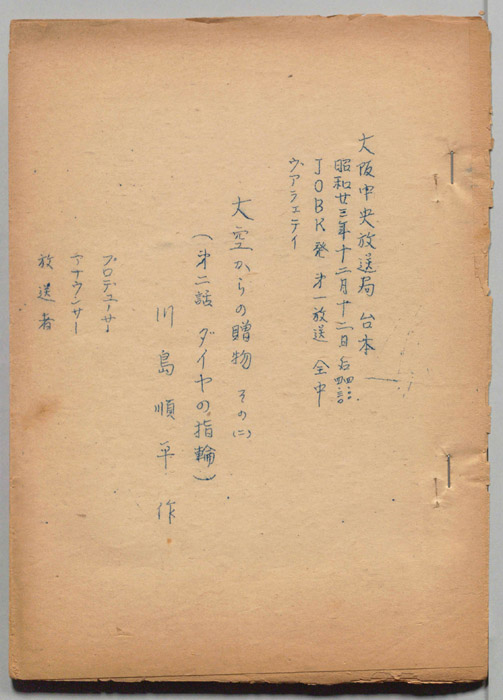 大阪中央放送局 台本
昭和廿三年十二月十二日后
JOBK発 才一放送 全中
ヴアラエテイ
大空からの贈物 その(二)
(才二話 ダイヤの指輪)
川島順平 作
プロデューサー
アナウンサー
放送者